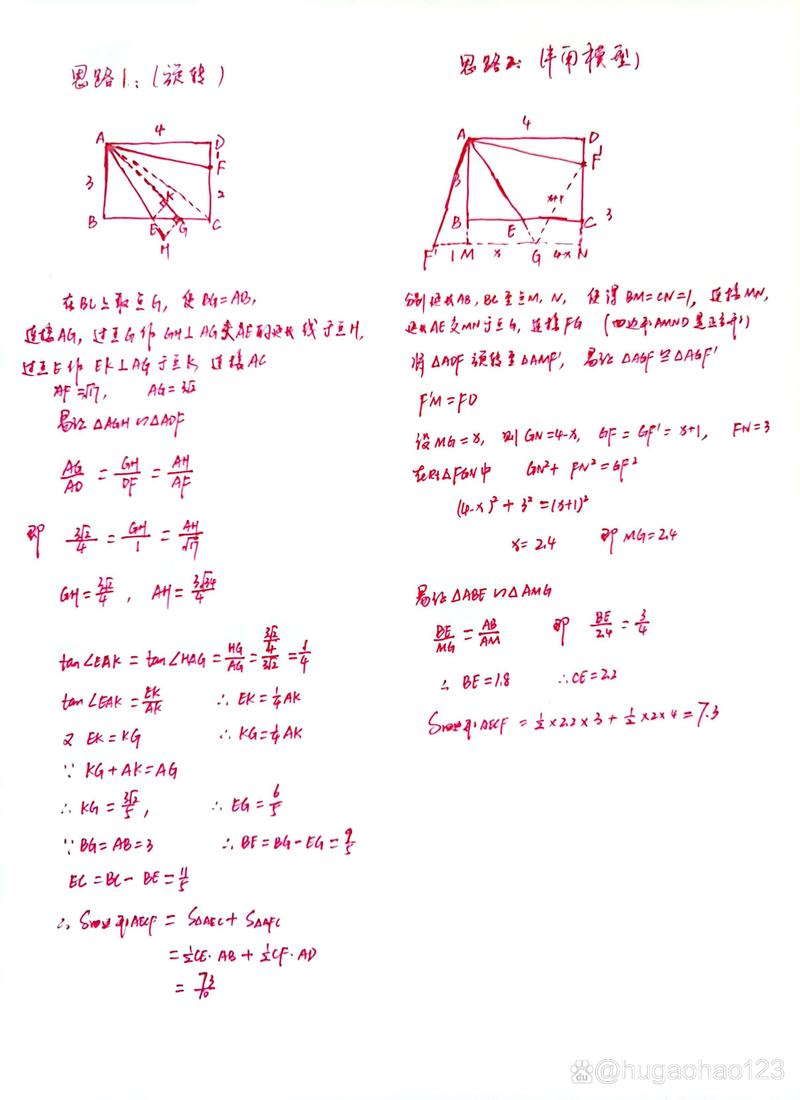 思路1：（旋转）
A
4
D
1
F
3
2
K
B
E
G
C
H
在BC上取点G，使BG=AB，
连接AG，过点G作GH⊥AG交AE的延长线于点H，
过点E作EK⊥AG于点K，连接AC
AF=√17， AG=3√2
易证△AGH∽△ADF
AG/AD = GH/DF = AH/AF
即 3√2/4 = GH/1 = AH/√17
GH=3√2/4， AH=3√34/4
tan∠EAK = tan∠HAG = HG/AG = (3√2/4)/(3√2) = 1/4
tan∠EAK = EK/AK ∴ EK=1/4AK
又 EK=KG ∴ KG=1/4AK
∵ KG+AK=AG
∴ KG=3√2/5， ∴ EG=6/5
∵BG=AB=3 ∴BE=BG-EG=9/5
EC=BC-BE=11/5
∴ S四边形AECF = S△AEC+S△AFC
=1/2CE·AB+1/2CF·AD
=73/10
思路2：（半角模型）
A
4
D
1
F
3
x+1
B
E
C
3
F'
1
M
x
G
4-x
N
分别延长AB，DC至点M，N， 使得BM=CN=1， 连接MN，
延长AE交MN于点G，连接FG （四边形AMND是正方形）
将△ADF旋转至△AMF'， 易证△AGF≌△AGF'
F'M=FD
设MG=x， 则GN=4-x， GF=GF'=x+1， FN=3
在Rt△FGN中 GN²+FN²=GF²
(4-x)²+3²=(x+1)²
x=2.4 即MG=2.4
易证△ABE∽△AMG
BE/MG=AB/AM 即 BE/2.4=3/4
∴ BE=1.8 ∴CE=2.2
S四边形AECF=1/2×2.2×3+1/2×2×4=7.3
du @hugaohao123